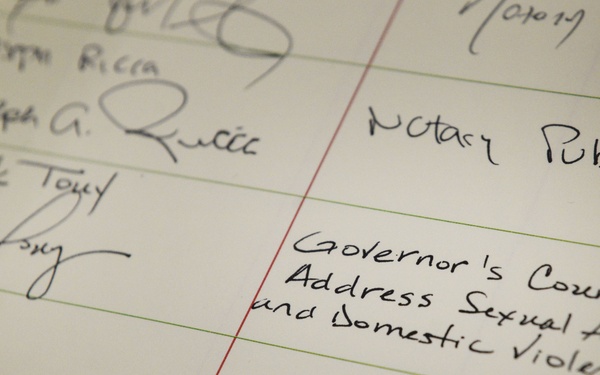 Notary
Ricca
A. Ricca
Notary Pub
Tony
Governor's Coun
Address Sexual A
and Domestic Viole